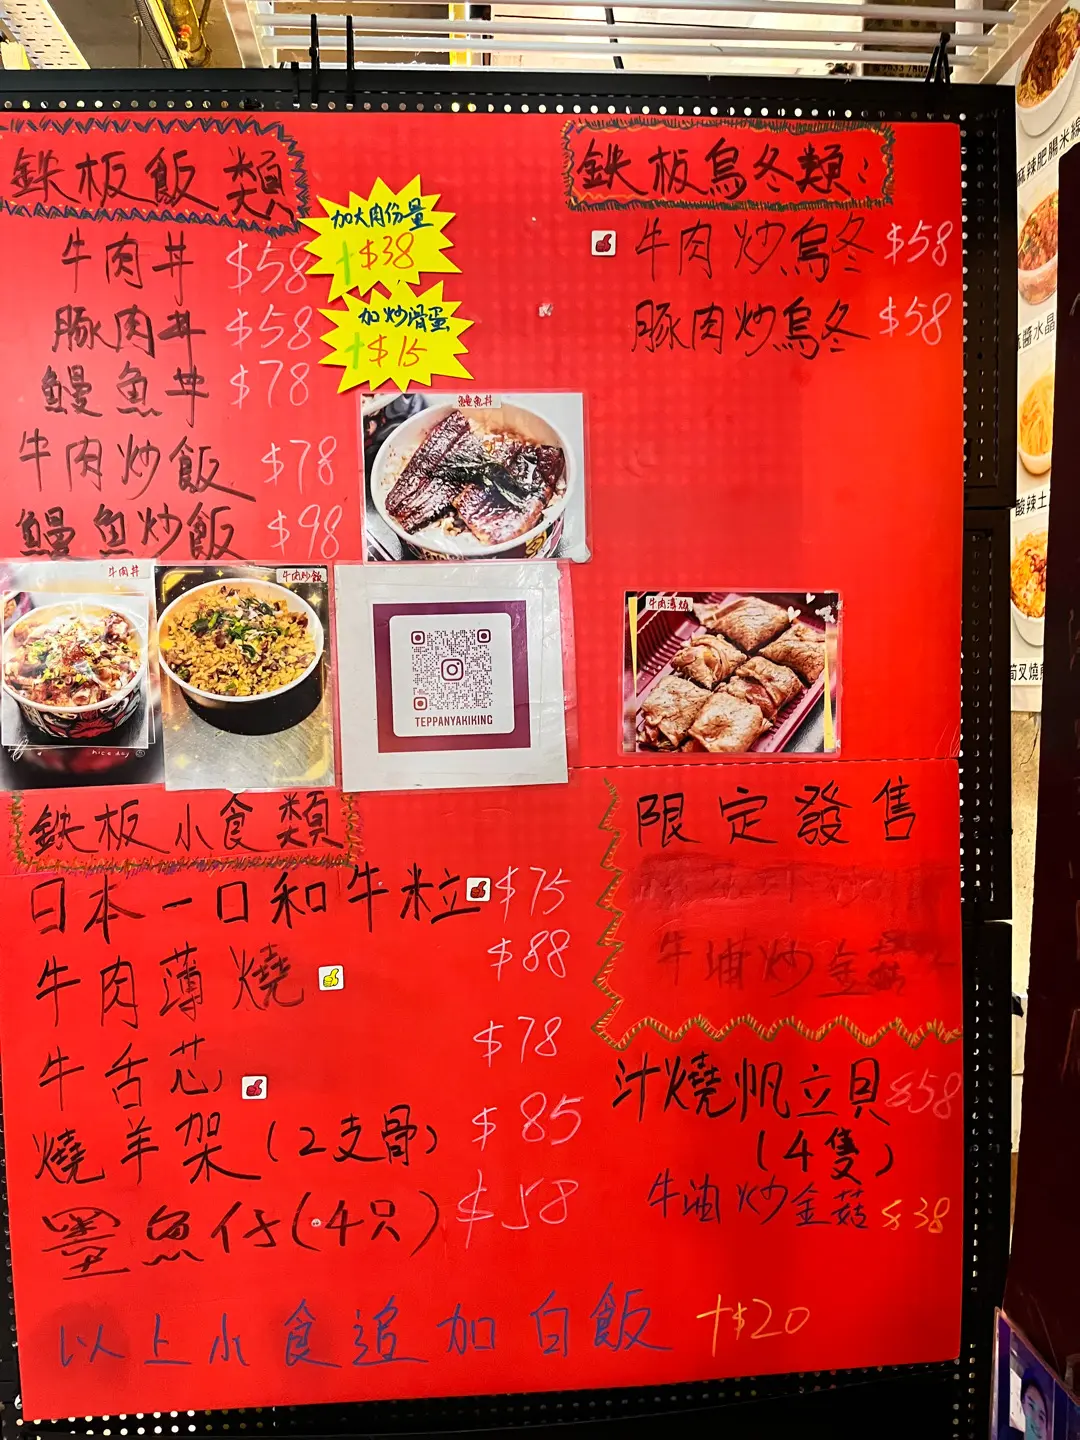 鉄板飯類
牛肉丼 $58
豚肉丼 $58
鰻魚丼 $78
牛肉炒飯 $78
鰻魚炒飯 $98
加大肉份量
+$38
加炒滑蛋
+$15
鰻魚丼
牛肉丼
nice day
牛肉炒飯
TEPPANYAKIKING
鉄板烏冬類：
牛肉炒烏冬 $58
豚肉炒烏冬 $58
牛肉薄燒
鉄板小食類
日本一口和牛粒 $75
牛肉薄燒 $88
牛舌芯 $78
燒羊架(2支骨) $85
墨魚仔(4只) $58
限定發售
汁燒帆立貝 $58
(4隻)
牛油炒金菇 $38
以上小食追加白飯 +$20
麻辣肥腸米線
酸辣土